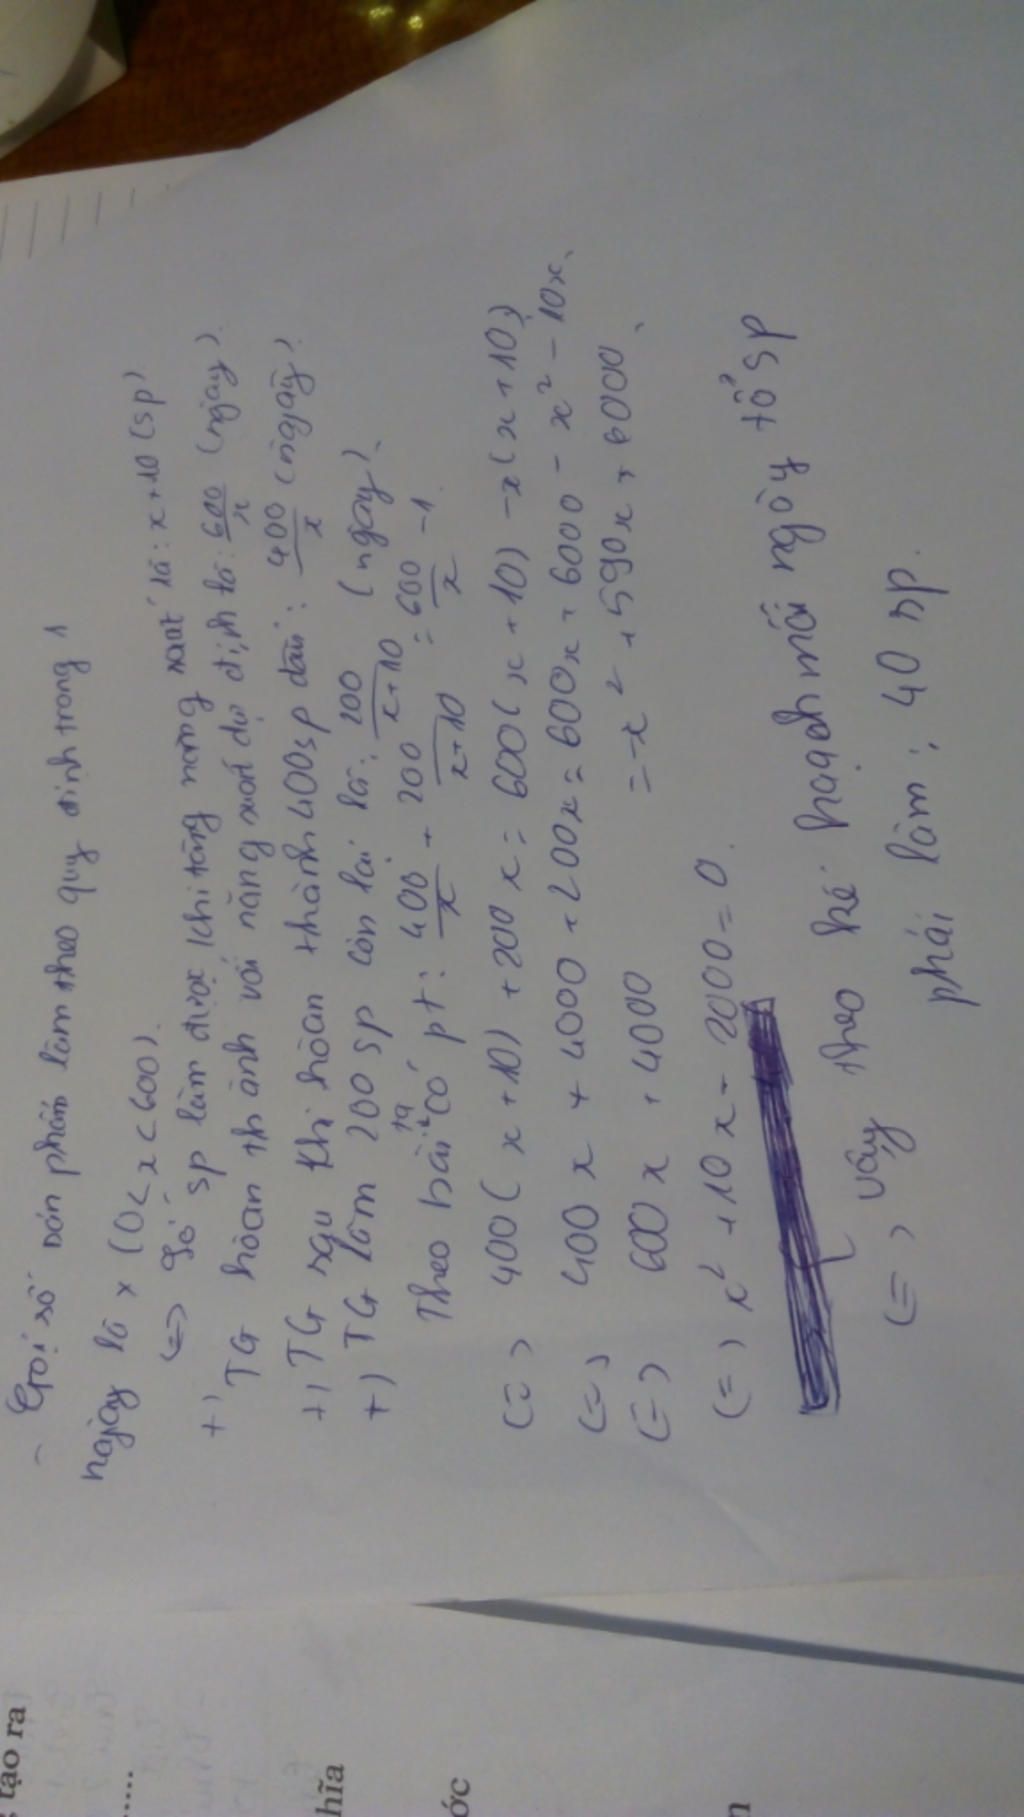 - Gọi số sản phẩm làm theo quy định trong 1
ngày là x (0< x < 600).
(=> Số sp làm được khi tăng năng xuất là: x+10 (sp)
+) TG hoàn thành với năng xuất dự định là: 600/x (ngày).
+) TG sau khi hoàn thành 400sp đầu: 400/x (ngày).
+) TG làm 200 sp còn lại là: 200/x+10 (ngày).
Theo bài ta có pt: 400/x + 200/x+10 = 600/x - 1.
(=) 400( x +10) +200 x = 600( x + 10) -x( x + 10)
(=) 400 x + 4000 + 200x = 600x + 6000 - x² - 10x.
(=) 600 x + 4000 = -x² + 590x + 6000
(=) x² +10 x - 2000 = 0.
(=) Vậy theo kế hoạch mỗi ngày tổ sp
phải làm : 40 sp.
tạo ra
.....
hĩa
ớc